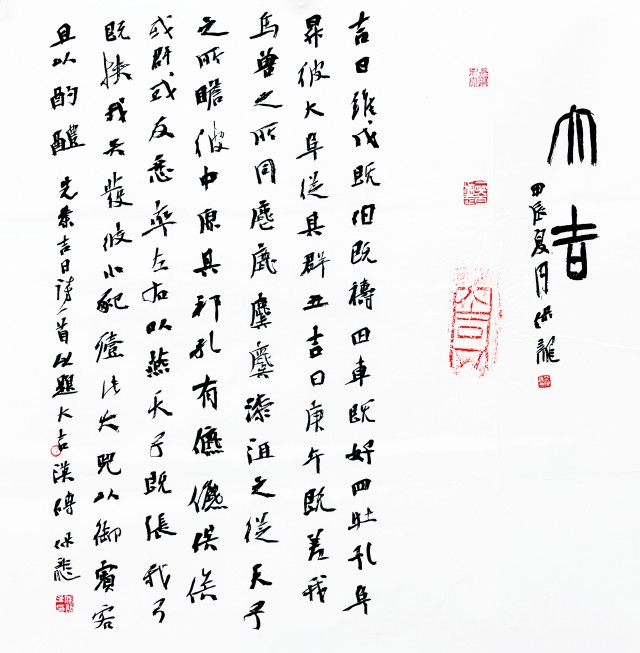 大吉
甲辰夏月
吉日維戊既伯既禱四車既好四牡孔阜
昇彼大阜從其群丑吉日庚午既差我
馬獸之所同麀鹿麌麌漆沮之從天子
之所瞻彼中原其祁孔有儦儦俟俟
或群或友悉率左右以燕天子既張我弓
既挾我矢發彼小豝殪此大兕以御賓客
且以酌醴 先秦吉日詩一首以題大吉